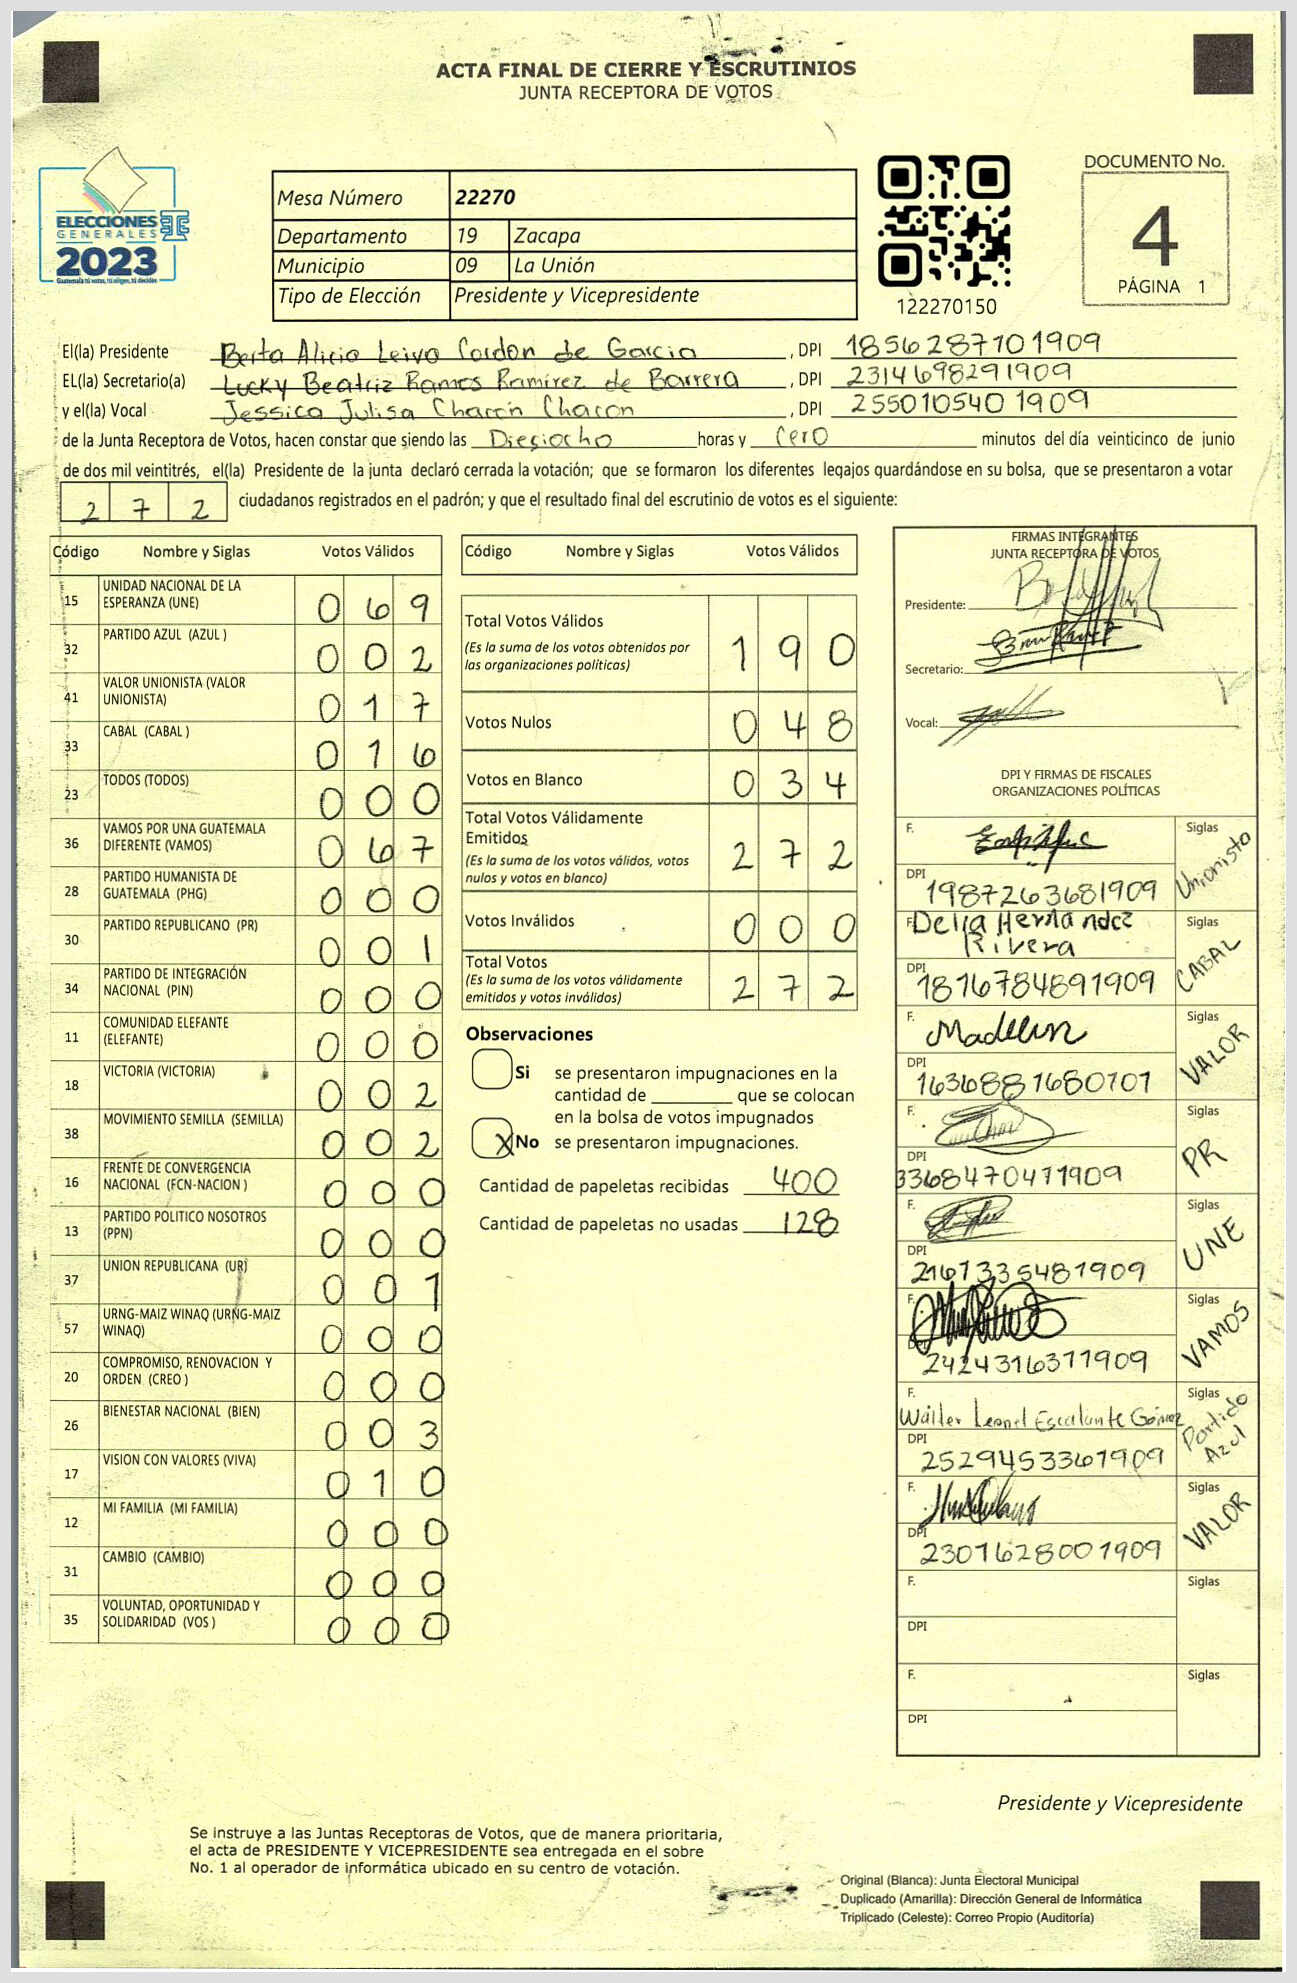 ACTA FINAL DE CIERRE Y ESCRUTINIOS
JUNTA RECEPTORA DE VOTOS
ELECCIONES
GENERALES
2023
Guatemala tú votas, tú eliges, tú decides
Mesa Número 22270
Departamento 19 Zacapa
Municipio 09 La Unión
Tipo de Elección Presidente y Vicepresidente
122270150
DOCUMENTO No.
4
PÁGINA 1
El(la) Presidente Berta Alicia Leiva Cordon de Garcia , DPI 1856287101909
EL(la) Secretario(a) Lucky Beatriz Ramos Ramirez de Barrera , DPI 2314698291909
y el(la) Vocal Jessica Julisa Chacón Chacon , DPI 2550105401909
de la Junta Receptora de Votos, hacen constar que siendo las Dieciocho horas y cero minutos del día veinticinco de junio
de dos mil veintitrés, el(la) Presidente de la junta declaró cerrada la votación; que se formaron los diferentes legajos quardándose en su bolsa, que se presentaron a votar
272 ciudadanos registrados en el padrón; y que el resultado final del escrutinio de votos es el siguiente:
Código Nombre y Siglas Votos Válidos
15 UNIDAD NACIONAL DE LA ESPERANZA (UNE) 069
32 PARTIDO AZUL (AZUL ) 002
41 VALOR UNIONISTA (VALOR UNIONISTA) 017
33 CABAL (CABAL ) 016
23 TODOS (TODOS) 000
36 VAMOS POR UNA GUATEMALA DIFERENTE (VAMOS) 067
28 PARTIDO HUMANISTA DE GUATEMALA (PHG) 000
30 PARTIDO REPUBLICANO (PR) 001
34 PARTIDO DE INTEGRACIÓN NACIONAL (PIN) 000
11 COMUNIDAD ELEFANTE (ELEFANTE) 000
18 VICTORIA (VICTORIA) 002
38 MOVIMIENTO SEMILLA (SEMILLA) 002
16 FRENTE DE CONVERGENCIA NACIONAL (FCN-NACION ) 000
13 PARTIDO POLITICO NOSOTROS (PPN) 000
37 UNION REPUBLICANA (UR) 001
57 URNG-MAIZ WINAQ (URNG-MAIZ WINAQ) 000
20 COMPROMISO, RENOVACION Y ORDEN (CREO ) 000
26 BIENESTAR NACIONAL (BIEN) 003
17 VISION CON VALORES (VIVA) 010
12 MI FAMILIA (MI FAMILIA) 000
31 CAMBIO (CAMBIO) 000
35 VOLUNTAD, OPORTUNIDAD Y SOLIDARIDAD (VOS ) 000
Código Nombre y Siglas Votos Válidos
Total Votos Válidos 190
(Es la suma de los votos obtenidos por
las organizaciones políticas)
Votos Nulos 048
Votos en Blanco 034
Total Votos Válidamente
Emitidos 272
(Es la suma de los votos válidos, votos
nulos y votos en blanco)
Votos Inválidos 000
Total Votos 272
(Es la suma de los votos válidamente
emitidos y votos inválidos)
Observaciones
Si se presentaron impugnaciones en la
cantidad de ________ que se colocan
en la bolsa de votos impugnados
X No se presentaron impugnaciones.
Cantidad de papeletas recibidas 400
Cantidad de papeletas no usadas 128
FIRMAS INTEGRANTES
JUNTA RECEPTORA DE VOTOS
Presidente:
Secretario:
Vocal:
DPI Y FIRMAS DE FISCALES
ORGANIZACIONES POLÍTICAS
F. Siglas Unionista
DPI 1987263681909
F. Delia Hernandez Rivera Siglas CABAL
DPI 1816784891909
F. Madelin Siglas VALOR
DPI 1636881680101
F. Siglas PR
DPI 3368470411909
F. Siglas UNE
DPI 2161335481909
F. Siglas VAMOS
DPI 2424316371909
F. Walter Leonel Escalante Gómez Siglas Partido Azul
DPI 2529453361909
F. Siglas VALOR
DPI 2301628001909
F. Siglas
DPI
F. Siglas
DPI
Presidente y Vicepresidente
Se instruye a las Juntas Receptoras de Votos, que de manera prioritaria,
el acta de PRESIDENTE Y VICEPRESIDENTE sea entregada en el sobre
No. 1 al operador de informática ubicado en su centro de votación.
Original (Blanca): Junta Electoral Municipal
Duplicado (Amarilla): Dirección General de Informática
Triplicado (Celeste): Correo Propio (Auditoría)